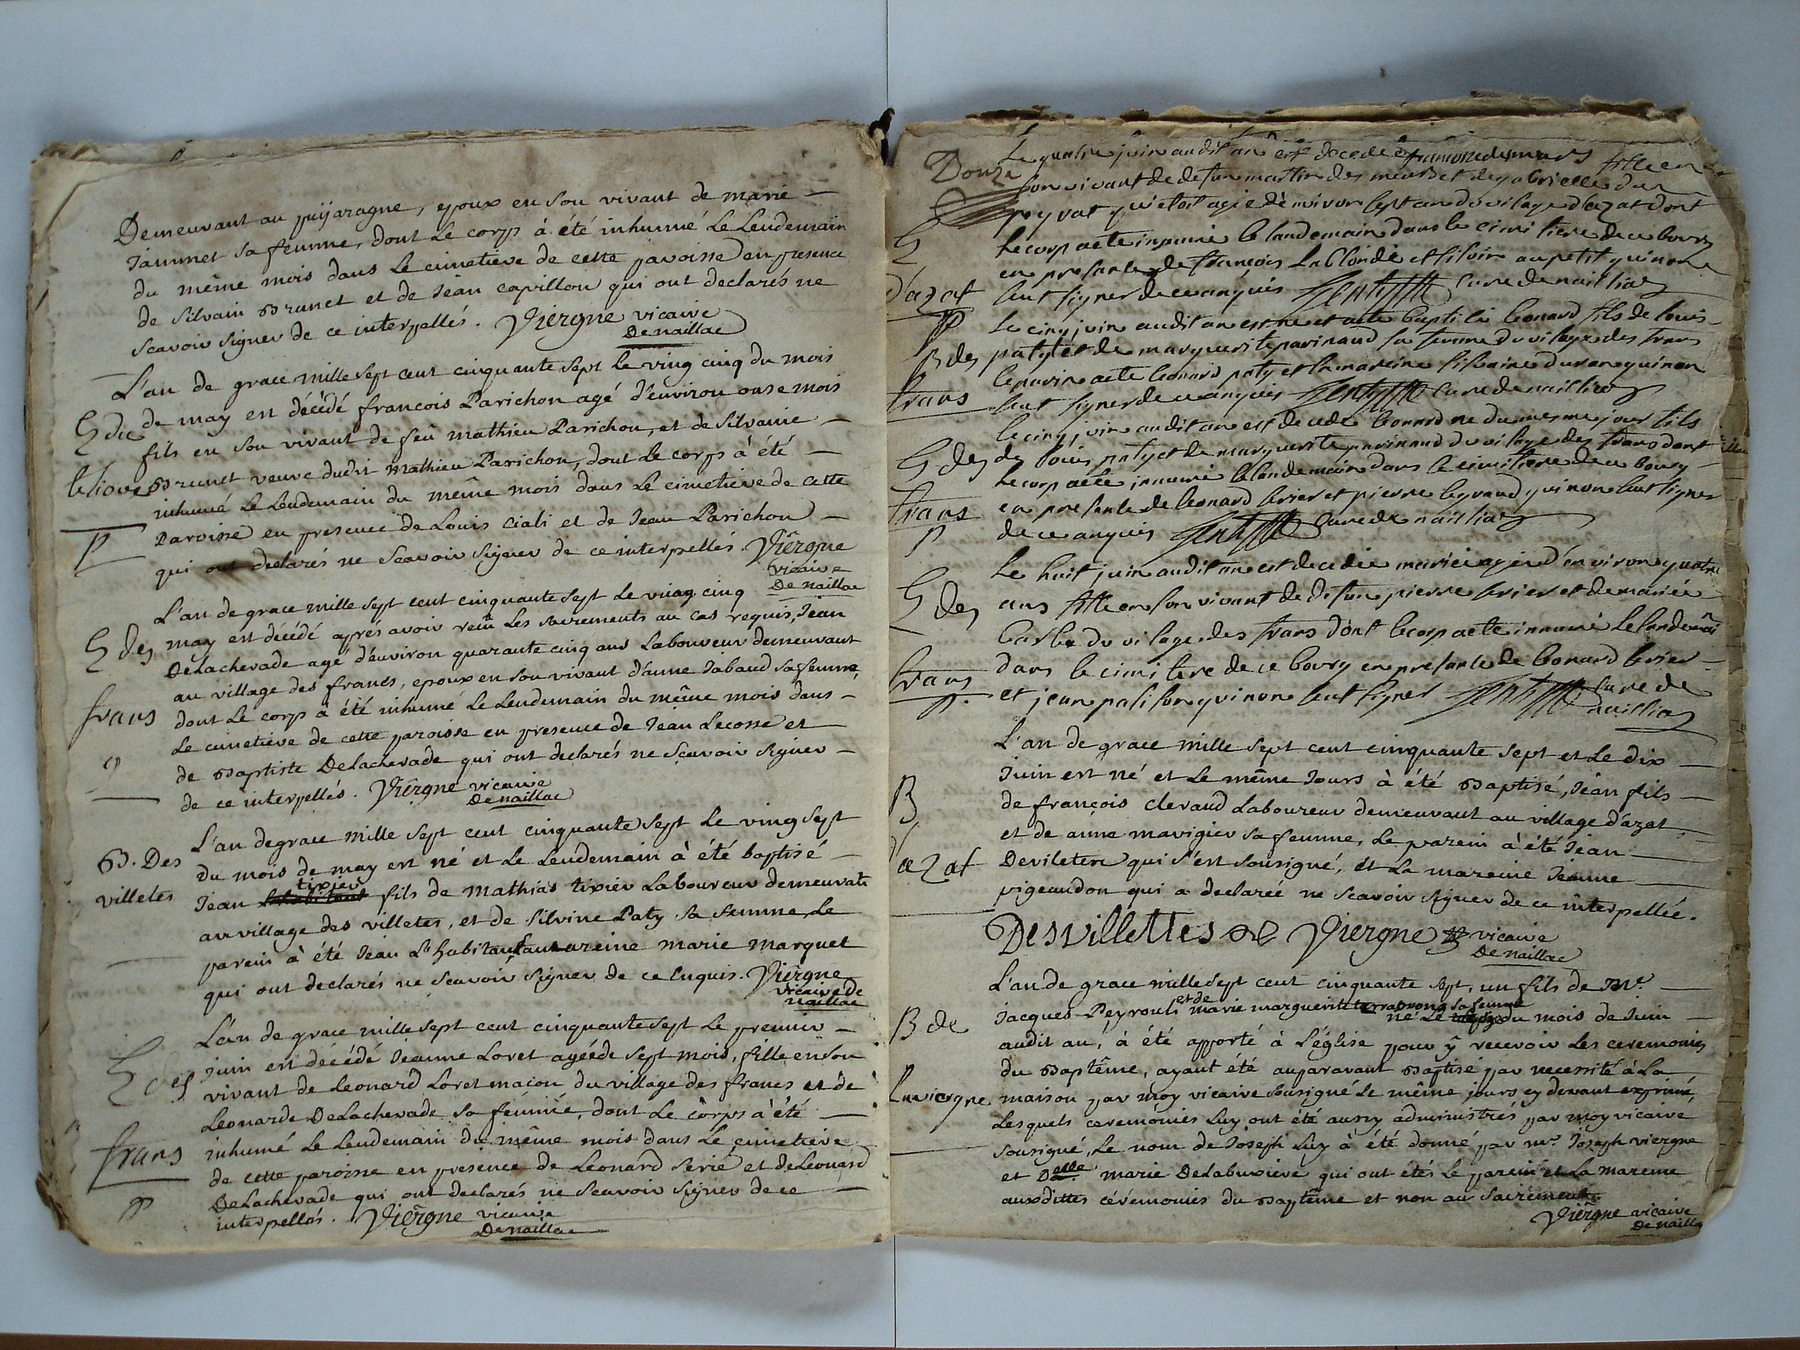 Demeurant au puÿaragne, epoux en son vivant de marie
Jammet sa femme, dont Le corps à été inhumé Le Lendemain
du même mois dans Le cimetiere de cette paroisse en presence
de Silvain Brunet et de Jean capillon qui ont declarés ne
scavoir signer de ce interpellés. Viergne vicaire
De naillac
L'an de grace mille sept cent cinquante sept Le ving cinq du mois
de may est décédé francois Parichon agé d'environ onse mois
fils en son vivant de feû mathieu Parichon, et de Silvaine
Brunet veuve dudit mathieu Parichon, dont Le corps à été
inhumé Le Lendemain du même mois dans Le cimetiere de cette
Paroisse en presence de Louis Ciali et de Jean Parichon
qui ont declarés ne scavoir signer de ce interpellés. Viergne
vicaire
De naillac
L'an de grace mille sept cent cinquante sept Le ving cinq
may est décédé aprés avoir recû Les sacrements au cas requis, Jean
DeLachevade agé d'environ quarante cinq ans Laboureur demeurant
au village des francs, epoux en son vivant d'anne Jabaud sa femme,
dont Le corps à été inhumé Le Lendemain du même mois dans
Le cimetiere de cette paroisse en presence de Jean Lecosse et
de Baptiste DeLachevade qui ont declarés ne scavoir signer
de ce interpellés. Viergne vicaire
de naillac
B. Des
villetes
L'an de grace mille sept cent cinquante sept Le ving sept
du mois de may est né et Le Lendemain à été baptisé
tixier
Jean fils de mathias tixier Laboureur demeurant
au village des villetes, et de Silvine Paty sa femme, Le
parein à été Jean L'habitant mareine marie marquet
qui ont declarés ne scavoir signer de ce Enquis. Viergne
vicaire de
naillac
L'an de grace mille sept cent cinquante sept Le premier
Juin est décédé Jeanne Loret agéede sept mois, fille en son
vivant de Leonard Loret macon du village des francs et de
Leonarde DeLachevade sa femme, dont Le corps à été
inhumé Le Lendemain du même mois dans Le cimetiere
de cette paroisse en presence de Leonard serié et de Leonard
DeLachevade qui ont declarés ne scavoir signer de ce
interpellés. Viergne vicaire
De naillac
des
frans
P
Le quatre juin audit an est decede
son vivant de defun martin des meurs et de gabrielle du
peyrat
le corp a ete innumé le landemain dans le cimitiere de ce bourg
en presance de francois La Clonde et silvin au petit qui non
seut signer de ce anquis cure de nailliac
d'azat
Le cinq juin audit an est ne et a ete baptise leonard fils de louis
paty et de marguerite parinaud sa femme du vilage des frans
le parin a ete leonard paty et la mareine silvaine qui non
seut signer de ce anquis cure de nailliac
B des
frans
le cinq juin audit an est decede leonard ne du mesme jour fils
de louis paty et de marguerite parinaud du vilage des frans dont
le corp a ete innumé le landemain dans le cimitiere de ce bourg
en presante de leonard lerier et pierre legrand qui non seut signer
de ce anquis cure de nailliac
des
frans
P
Le huit juin audit an est decedée marie agée d'anviron quatre
ans fille en son vivant de defun pierre lerier et de mariée
barbe du vilage des frans dont le corp a ete innumé le landemain
dans le cimitere de ce bourg en presante de leonard lerier
et jean pasison qui non seut signer cure de
nailliac
des
frans
P.
L'an de grace mille sept cent cinquante sept et Le dix
Juin est né et Le même Jours à été Baptisé, Jean fils
de francois clerand Laboureur demeurant au village d'azat
et de anne mavigier sa femme, Le parein à été Jean
Devilletes qui s'est sousigné, et La mareine Jeanne
pigeaudon qui a declareé ne scavoir signer de ce interpellée.
B
d'azat
Desvillettes Viergne vicaire
De naillac
L'an de grace mille sept cent cinquante sept, un fils de Mr.
et de
Jacques Peyrouls marie marguerite sa femme
né Le du mois de Juin
audit an, à été apporté à L'église pour ÿ recevoir Les ceremonies
du Baptême, ayant été auparavant Baptisé par necessité à La
maison par moy vicaire sousigné Le même jours cy devant exprimé,
Lesquels ceremonies Luy ont été aussy administrés par moy vicaire
sousigné, Le nom de Joseph Luy à été donné par mr Joseph viergne
et Delle marie Delabussiere qui ont étés Le parein et La mareine
auxdittes céremonies du Baptême et non au sacrement.
B de
Laviergne
Viergne vicaire
De naillac